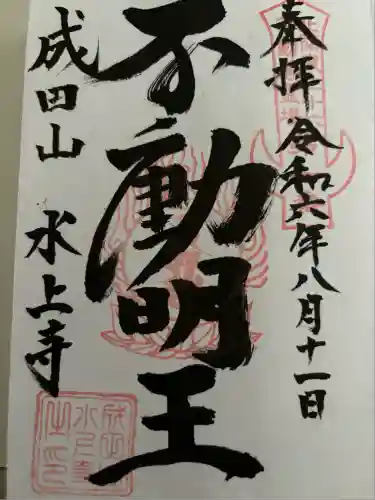 奉拝 令和六年八月十一日
不動明王
成田山 水上寺